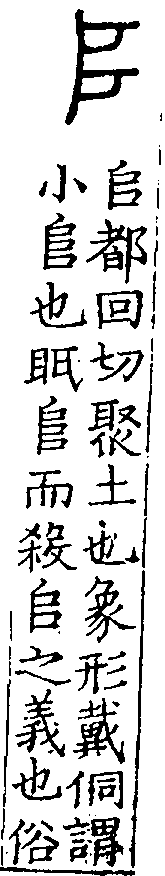 𠂤
𠂤都回切聚土也象形戴侗謂
小𨸏也眂𨸏而殺𠂤之義也俗